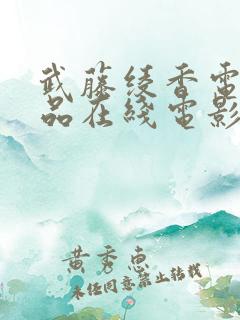 武藤绫香電
品在綫电影
黄秀惠
未经同意禁止转载